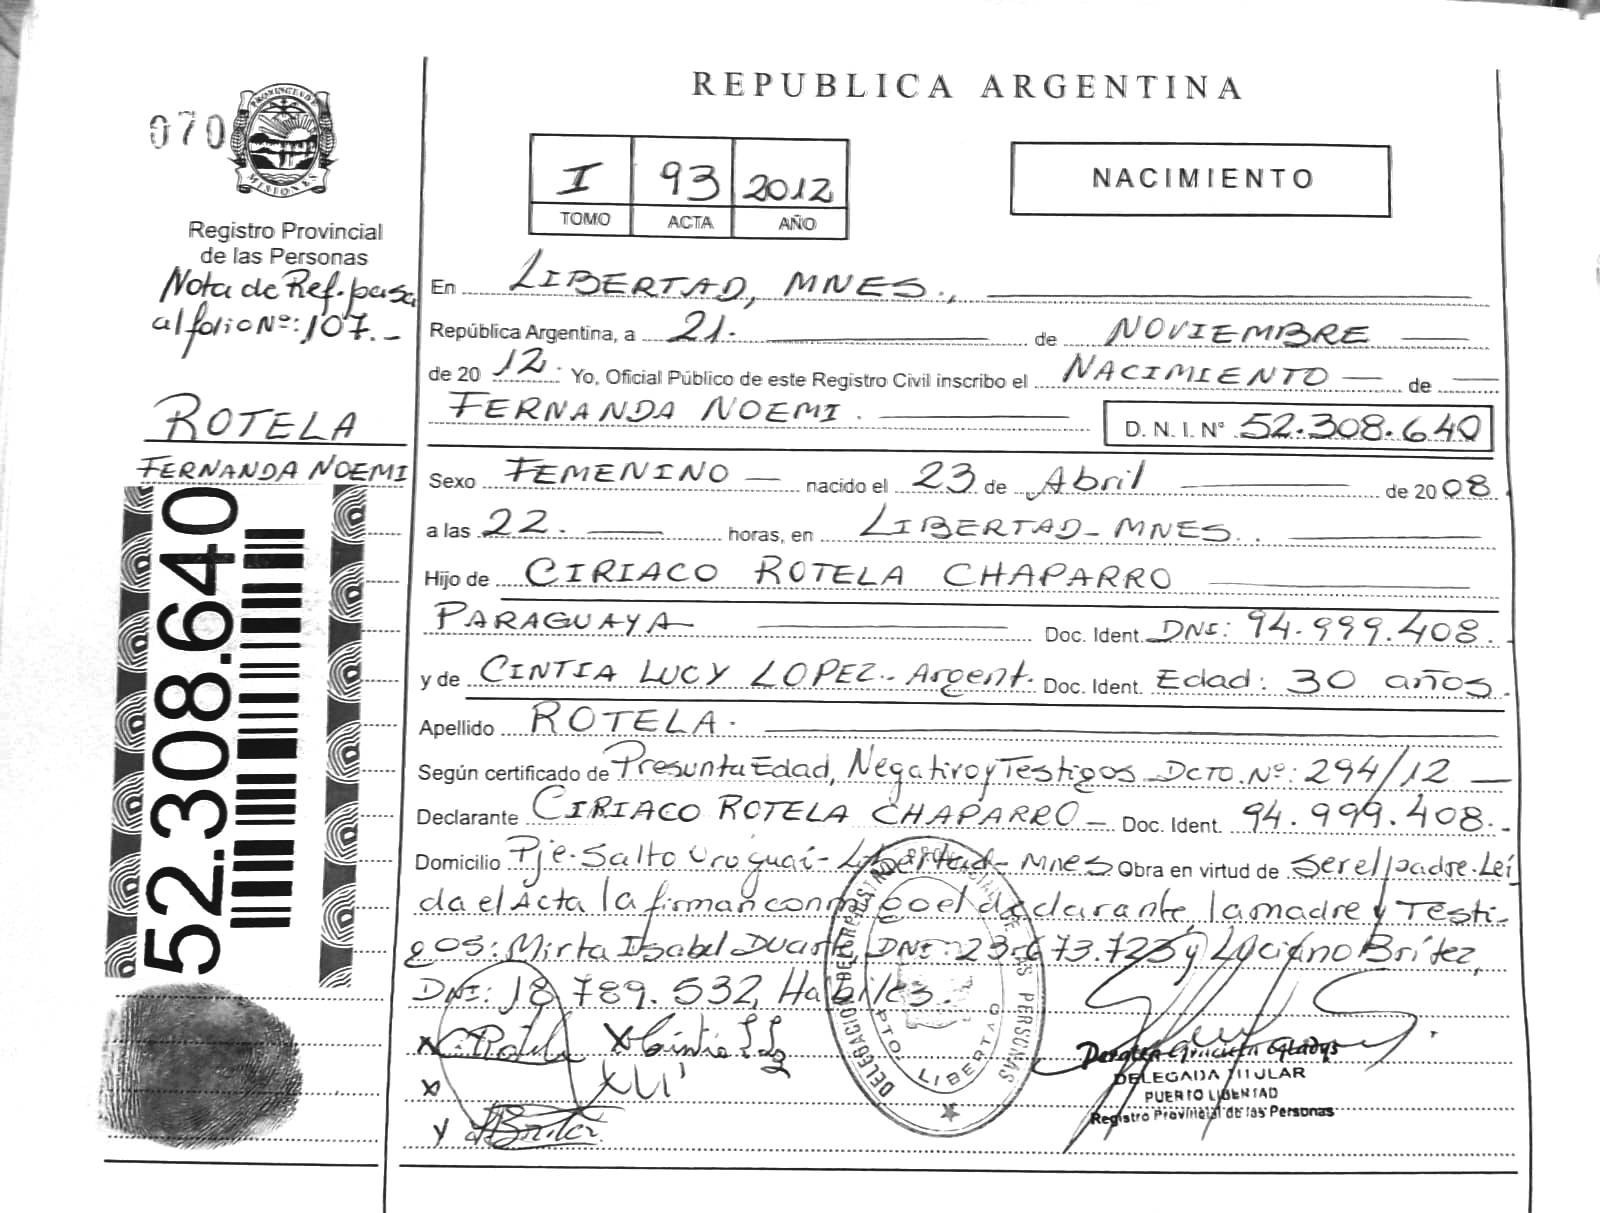 REPUBLICA ARGENTINA
070
PROVINCIA DE
MISIONES
Registro Provincial
de las Personas
Nota de Ref. pasa
al folio Nº: 107.-
ROTELA
FERNANDA NOEMI
52.308.640
I 93 2012
TOMO ACTA AÑO
NACIMIENTO
En LIBERTAD, MNES.,
República Argentina, a 21. de NOVIEMBRE
de 20 12. Yo, Oficial Público de este Registro Civil inscribo el NACIMIENTO de
FERNANDA NOEMI. D. N. I. Nº 52.308.640
Sexo FEMENINO nacido el 23 de Abril de 20 08
a las 22. horas, en LIBERTAD-MNES.
Hijo de CIRIACO ROTELA CHAPARRO
PARAGUAYA Doc. Ident. DNI: 94.999.408.
y de CINTIA LUCY LOPEZ.- Argent. Doc. Ident. Edad: 30 años.
Apellido ROTELA.
Según certificado de Presunta Edad, Negativo y Testigos Dcto. Nº: 294/12
Declarante CIRIACO ROTELA CHAPARRO Doc. Ident. 94.999.408.
Domicilio Pje. Salto Uruguaí - Libertad - Mnes Obra en virtud de ser el padre. Leí
da el Acta la firman conmigo el declarante, la madre y Testi-
gos: Mirta Isabel Duarte, DNI: 23.673.723 y Luciano Brítez,
DNI: 18.789.532, Habiles.
x C. Rotela x Cintia
x
y Britez
DELEGACION DEL REGISTRO PROVINCIAL DE LAS PERSONAS
PTO. LIBERTAD
Graciela Gladys
DELEGADA TITULAR
PUERTO LIBERTAD
Registro Provincial de las Personas